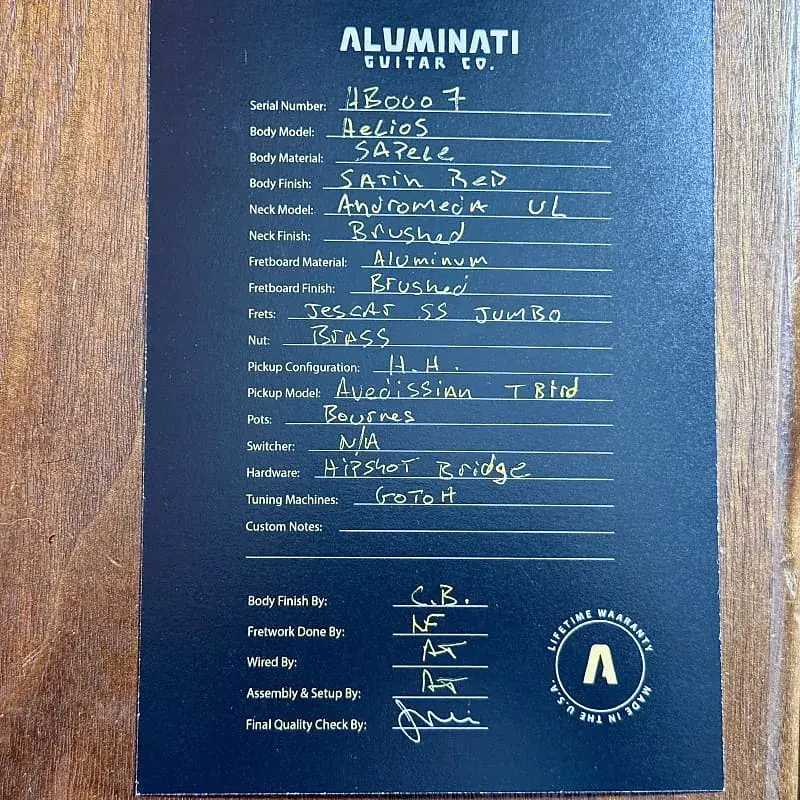 ALUMINATI
GUITAR CO.
Serial Number: HB0007
Body Model: HeLioS
Body Material: SAPeLe
Body Finish: SATin ReD
Neck Model: AndromedA UL
Neck Finish: Brushed
Fretboard Material: Aluminum
Fretboard Finish: Brushed
Frets: JescAr SS JUMBO
Nut: BrASS
Pickup Configuration: H.H.
Pickup Model: Avedissian T Bird
Pots: Bournes
Switcher: N/A
Hardware: HipSHOT Bridge
Tuning Machines: GOTOH
Custom Notes:
Body Finish By: C.B.
Fretwork Done By: NF
Wired By: AT
Assembly & Setup By: AT
Final Quality Check By:
LIFETIME WAARANTY
A
MADE IN THE U.S.A.